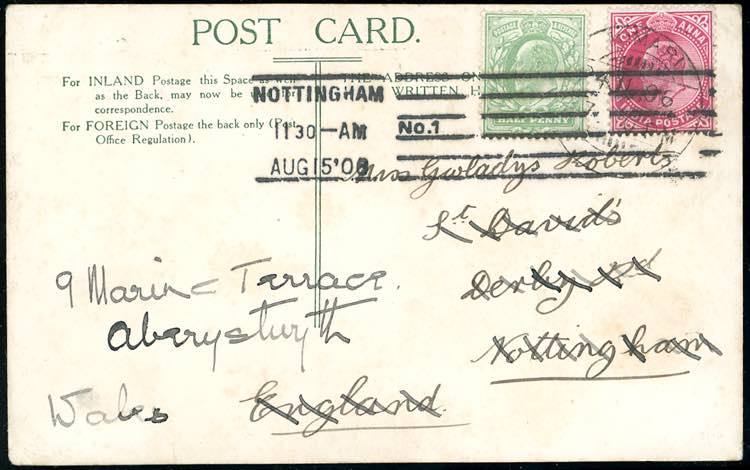 POST CARD.
For INLAND Postage this Space as well
as the Back, may now be used for
correspondence.
For FOREIGN Postage the back only (Post
Office Regulation).
THE ADDRESS ON
WRITTEN H
NOTTINGHAM
11 30-AM
AUG 15 '06
No. 1
POSTAGE
HALF PENNY
ONE ANNA
INDIA POSTAGE
Miss Gwladys Roberts
St. David's
Derby Rd
Nottingham
England.
9 Marine Terrace.
Aberystwyth
Wales